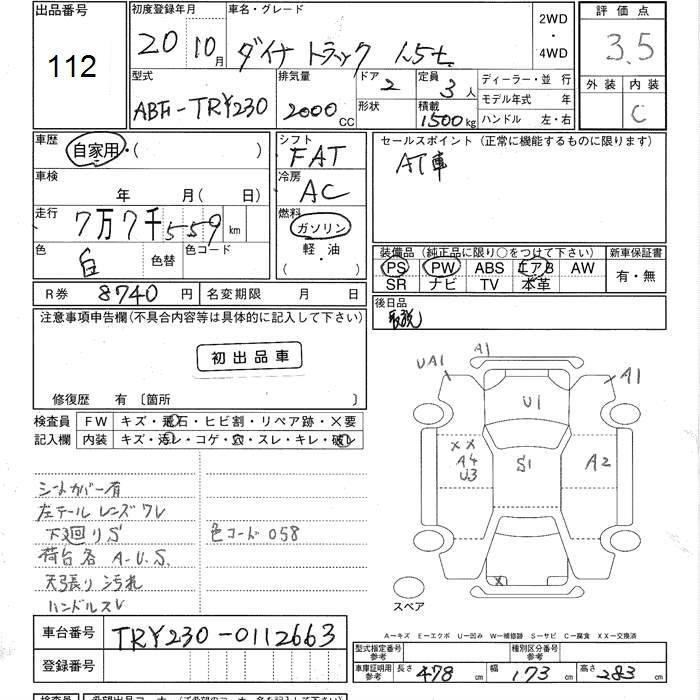 出品番号
112
初度登録年月
20 10月
車名・グレード
ダイナ トラック 1.5t
2WD
・
4WD
評価点
3.5
外装 内装
C
型式
ABF-TRY230
排気量
2000 CC
ドア 2
形状
定員
3人
積載
1500kg
ディーラー・並行
モデル年式 年
ハンドル 左・右
車歴
自家用・( )
車検
年 月(日)
走行
7万7千559 km
色
白
色替
色コード
シフト
FAT
冷房
AC
燃料
ガソリン
軽・油
( ・ )
セールスポイント(正常に機能するものに限ります)
AT車
装備品(純正品に限り○をつけて下さい)
PS PW ABS エアB AW
SR ナビ TV 本革
新車保証書
有・無
R券 8740円
名変期限 月 日
後日品
取説
注意事項申告欄(不具合内容等は具体的に記入して下さい)
初出品車
修復歴 有〔箇所 〕
検査員
記入欄
FW キズ・飛石・ヒビ割・リペア跡・×要
内装 キズ・汚レ・コゲ・穴・スレ・キレ・破レ
シートカバー有
左テールレンズワレ
下廻りS
色コード 058
荷台各 A.U.S.
天張り汚れ
ハンドルスレ
UA1
A1
A1
U1
XX
A4
U3
S1
A2
X
スペア
A−キズ E−エクボ U−凹み W−補修跡 S−サビ C−腐食 XX−交換済
車台番号
TRY230-0112663
登録番号
型式指定番号
参考
種別区分番号
参考
車庫証明用
参考
長さ 478 cm
幅 173 cm
高さ 283 cm